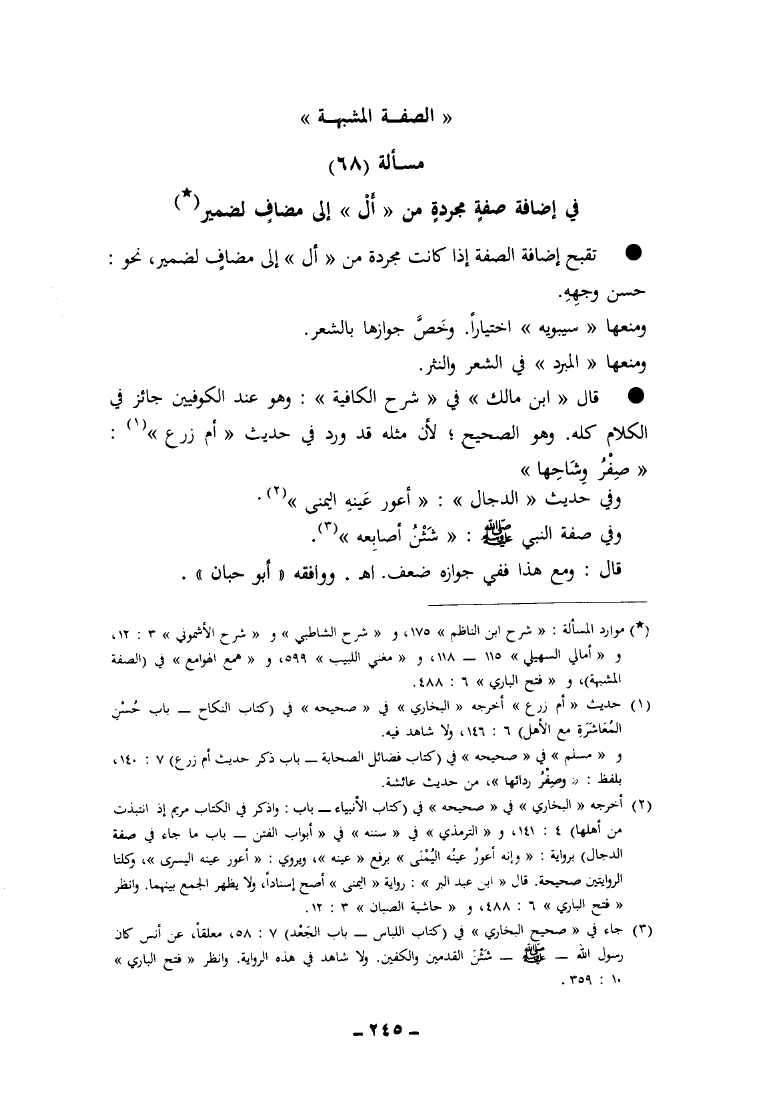 « الصفـة المشبهـة »
مسألة (٦٨)
في إضافة صفةٍ مجردةٍ من « أَلْ » إلى مضافٍ لضمير(★)
● تقبح إضافة الصفة إذا كانت مجردة من « أل » إلى مضافٍ لضمير، نحو :
حسن وجهِهِ.
ومنعها « سيبويه » اختياراً. وخَصَّ جوازها بالشعر.
ومنعها « المبرد » في الشعر والنثر.
● قال « ابن مالك » في « شرح الكافية » : وهو عند الكوفيين جائز في
الكلام كله. وهو الصحيح ؛ لأن مثله قد ورد في حديث « أم زرع »(١) :
« صِفْرُ وِشَاحِها »
وفي حديث « الدجال » : « أعور عَينِهِ اليمنى »(٢).
وفي صفة النبي ﷺ : « شَثْنُ أصابِعه »(٣).
قال : ومع هذا ففي جوازه ضعف. اهـ . ووافقه « أبو حبان » .
(★) موارد المسألة : « شرح ابن الناظم » ١٧٥، و « شرح الشاطبي » و « شرح الأشموني » ٣ : ١٢،
و « أمالي السهيلي » ١١٥ — ١١٨، و « مغني اللبيب » ٥٩٩، و « همع الهوامع » في (الصفة
المشبهة)، و « فتح الباري » ٦ : ٤٨٨.
(١) حديث « أم زرع » أخرجه « البخاري » في « صحيحه » في (كتاب النكاح — باب حُسْنِ
المُعَاشَرَةِ مع الأهل) ٦ : ١٤٦، ولا شاهد فيه.
و « مسلم » في « صحيحه » في (كتاب فضائل الصحابة — باب ذكر حديث أم زرع) ٧ : ١٤٠،
بلفظ : « وصِفْرُ ردائها »، من حديث عائشة.
(٢) أخرجه « البخاري » في « صحيحه » في (كتاب الأنبياء — باب : واذكر في الكتاب مريم إذ انتبذت
من أهلها) ٤ : ١٤١، و « الترمذي » في « سننه » في « أبواب الفتن — باب ما جاء في صفة
الدجال) برواية : « وإنه أعورُ عينُه اليُمْنَى » برفع « عينه »، ويروي : « أعور عينه اليسرى »، وكلتا
الروايتين صحيحة. قال « ابن عبد البر » : رواية « اليمنى » أصح إسناداً، ولا يظهر الجمع بينهما. وانظر
« فتح الباري » ٦ : ٤٨٨، و « حاشية الصبان » ٣ : ١٢.
(٣) جاء في « صحيح البخاري » في (كتاب اللباس — باب الجَعْد) ٧ : ٥٨، معلقاً، عن أنس كان
رسول الله — ﷺ — شَثْنَ القدمين والكفين. ولا شاهد في هذه الرواية. وانظر « فتح الباري »
١٠ : ٣٥٩ .
ـ ٢٤٥ ـ